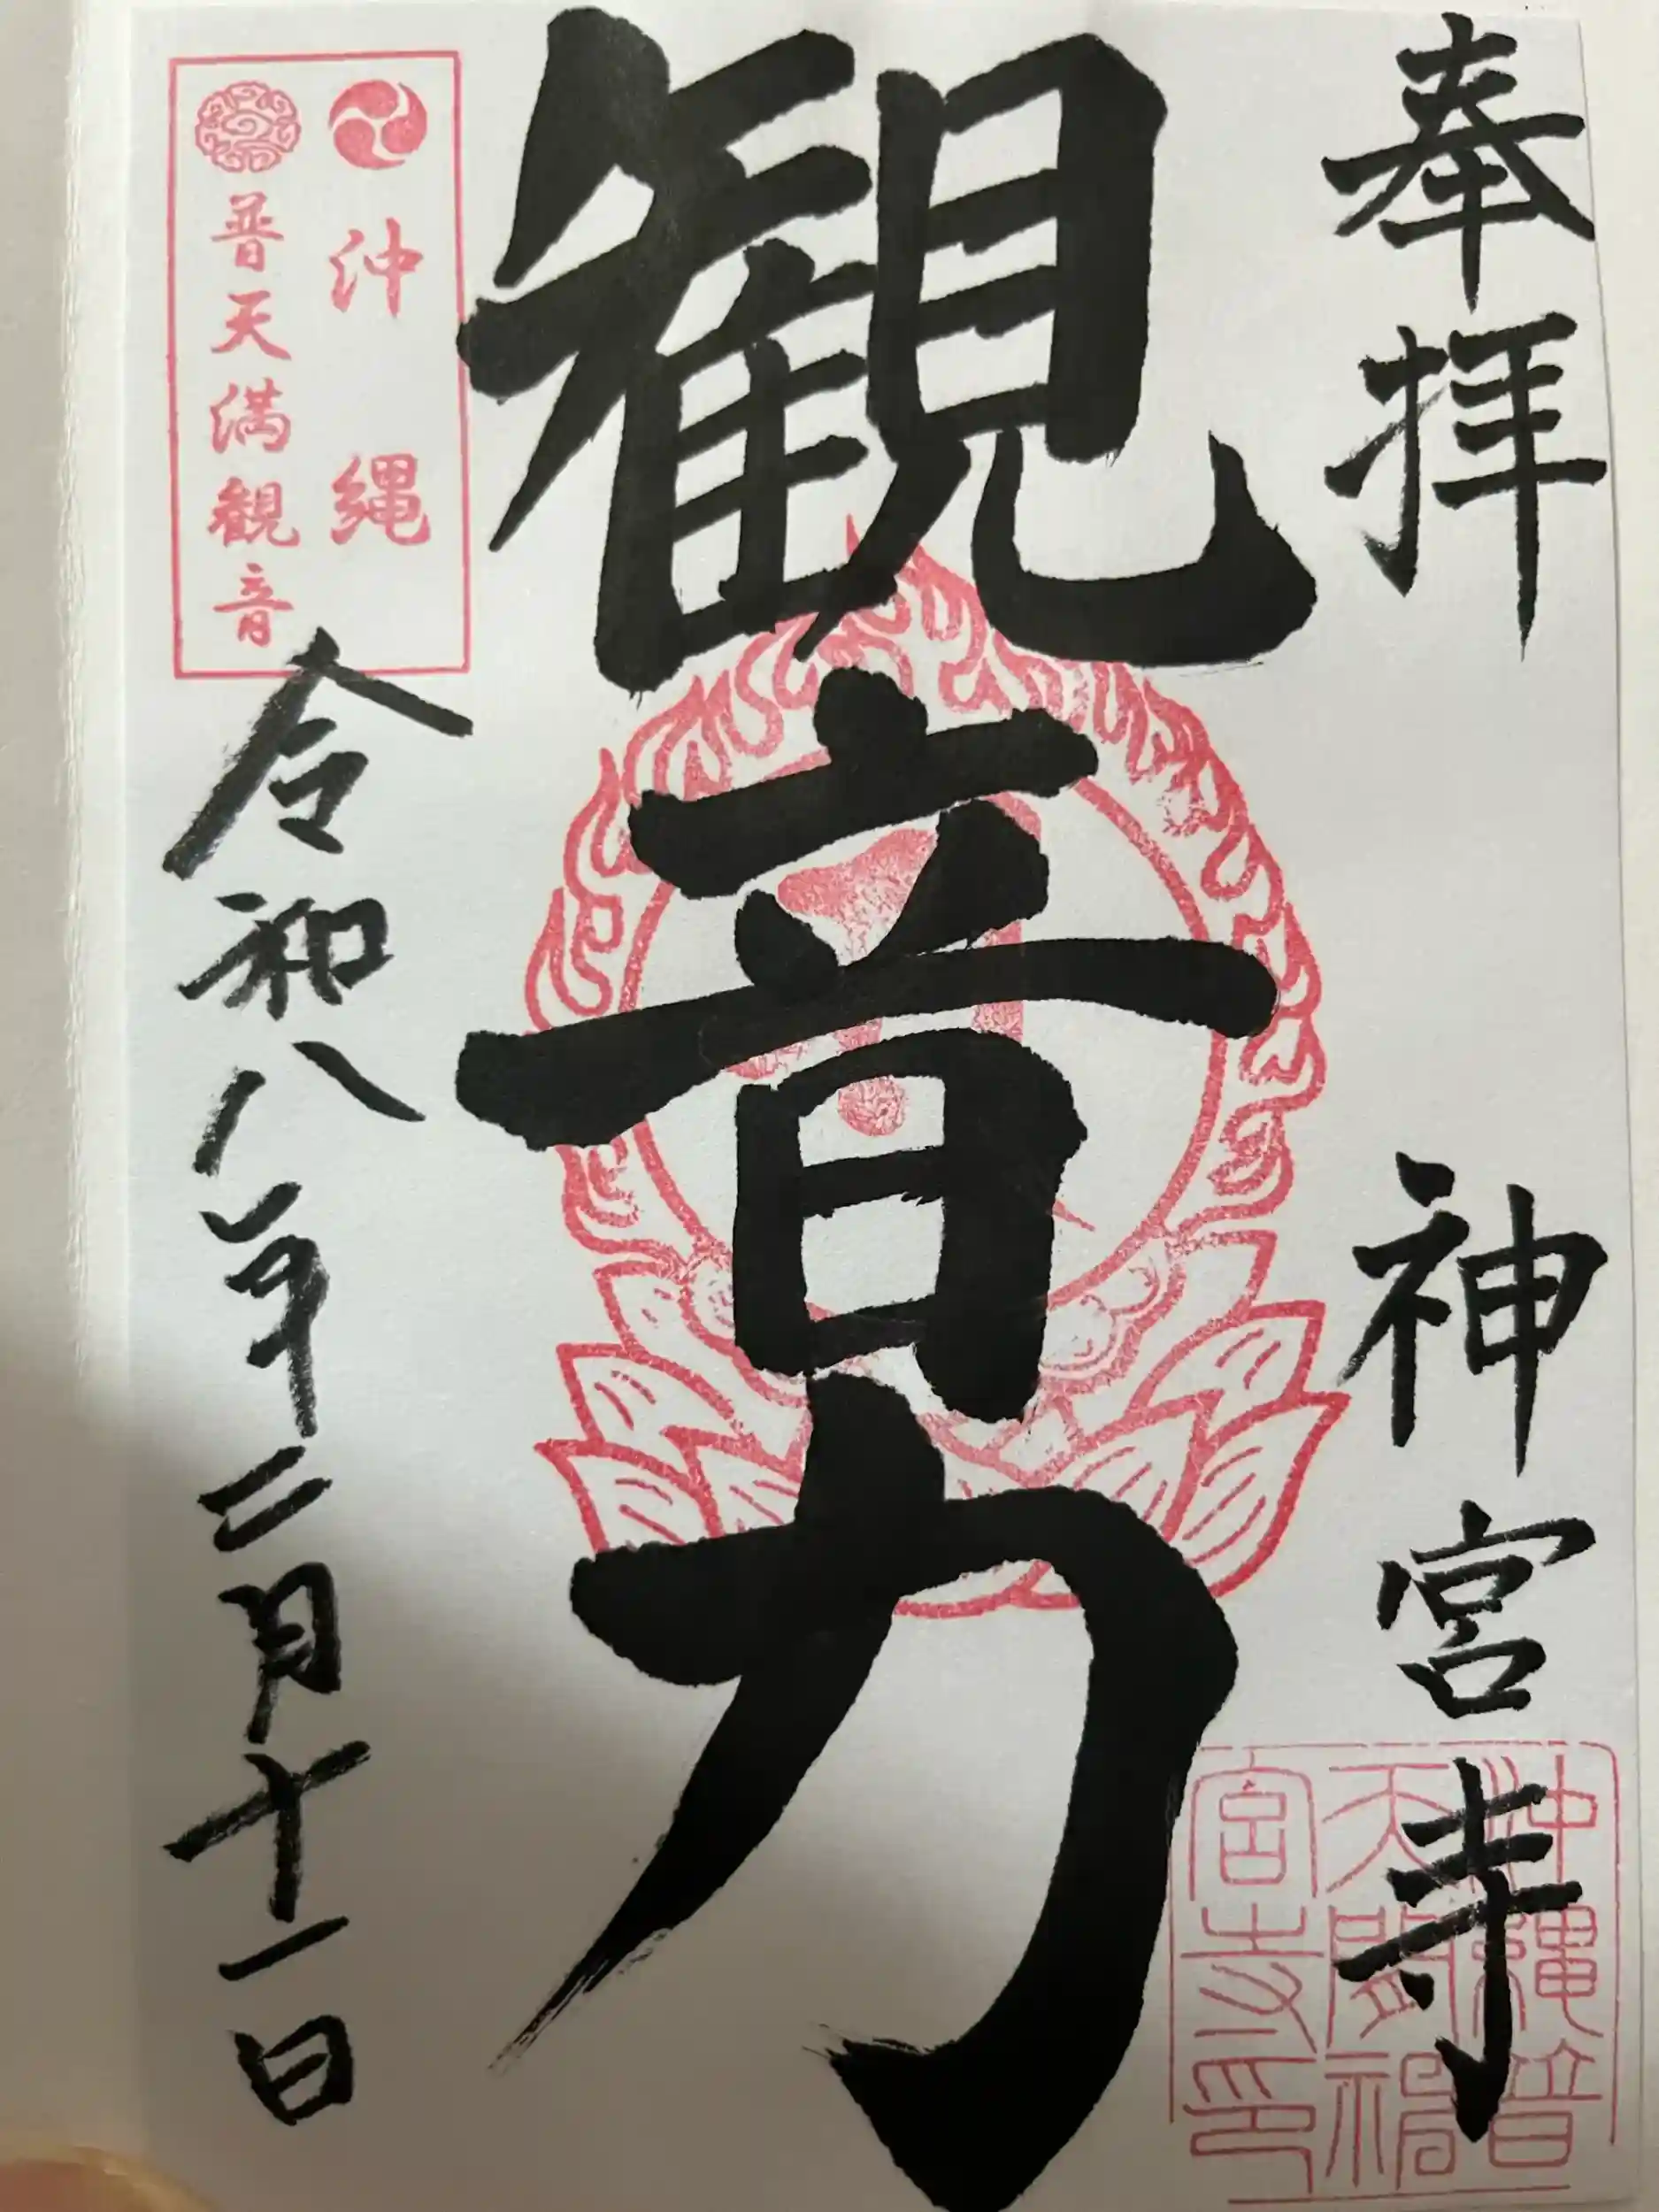 奉拝
神宮寺
観音力
沖縄
普天満観音
令和八年二月十一日
沖縄普
天間神
宮寺印